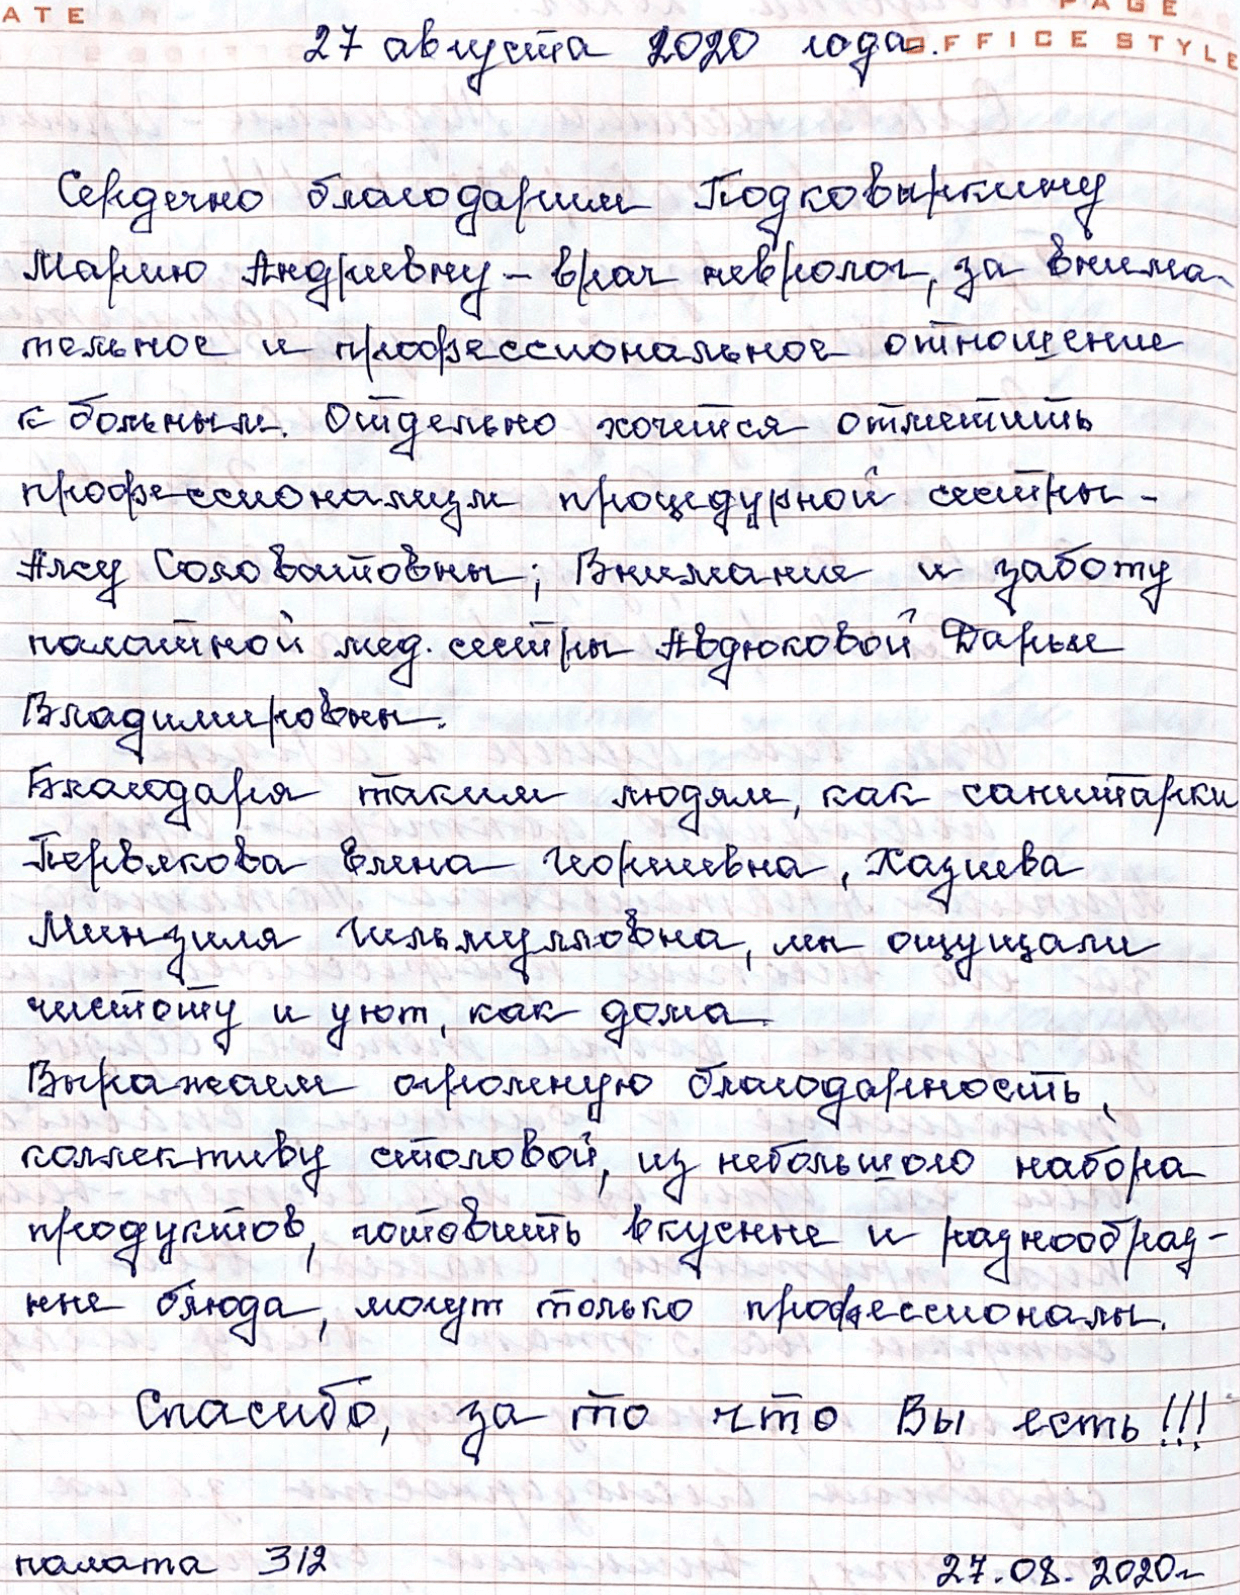 ATE
PAGE
OFFICE STYLE
27 августа 2020 года.
Сердечно благодарим Подковыркину
Марию Андриевну – врач невролог, за внима-
тельное и профессиональное отношение
к больным. Отдельно хочется отметить
профессионализм процедурной сестры –
Алсу Соловатовны; Внимание и заботу
палатной мед. сестры Авдюковой Дарьи
Владимировны.
Благодаря таким людям, как санитарки
Первякова Елена Георгиевна, Хазиева
Минзиля Гильмулловна, мы ощущали
чистоту и уют, как дома.
Выражаем огромную благодарность,
коллективу столовой, из небольшого набора
продуктов, готовить вкусные и разнообраз-
ные блюда, могут только профессионалы.
Спасибо, за то что Вы есть!!!
палата 312
27.08.2020г